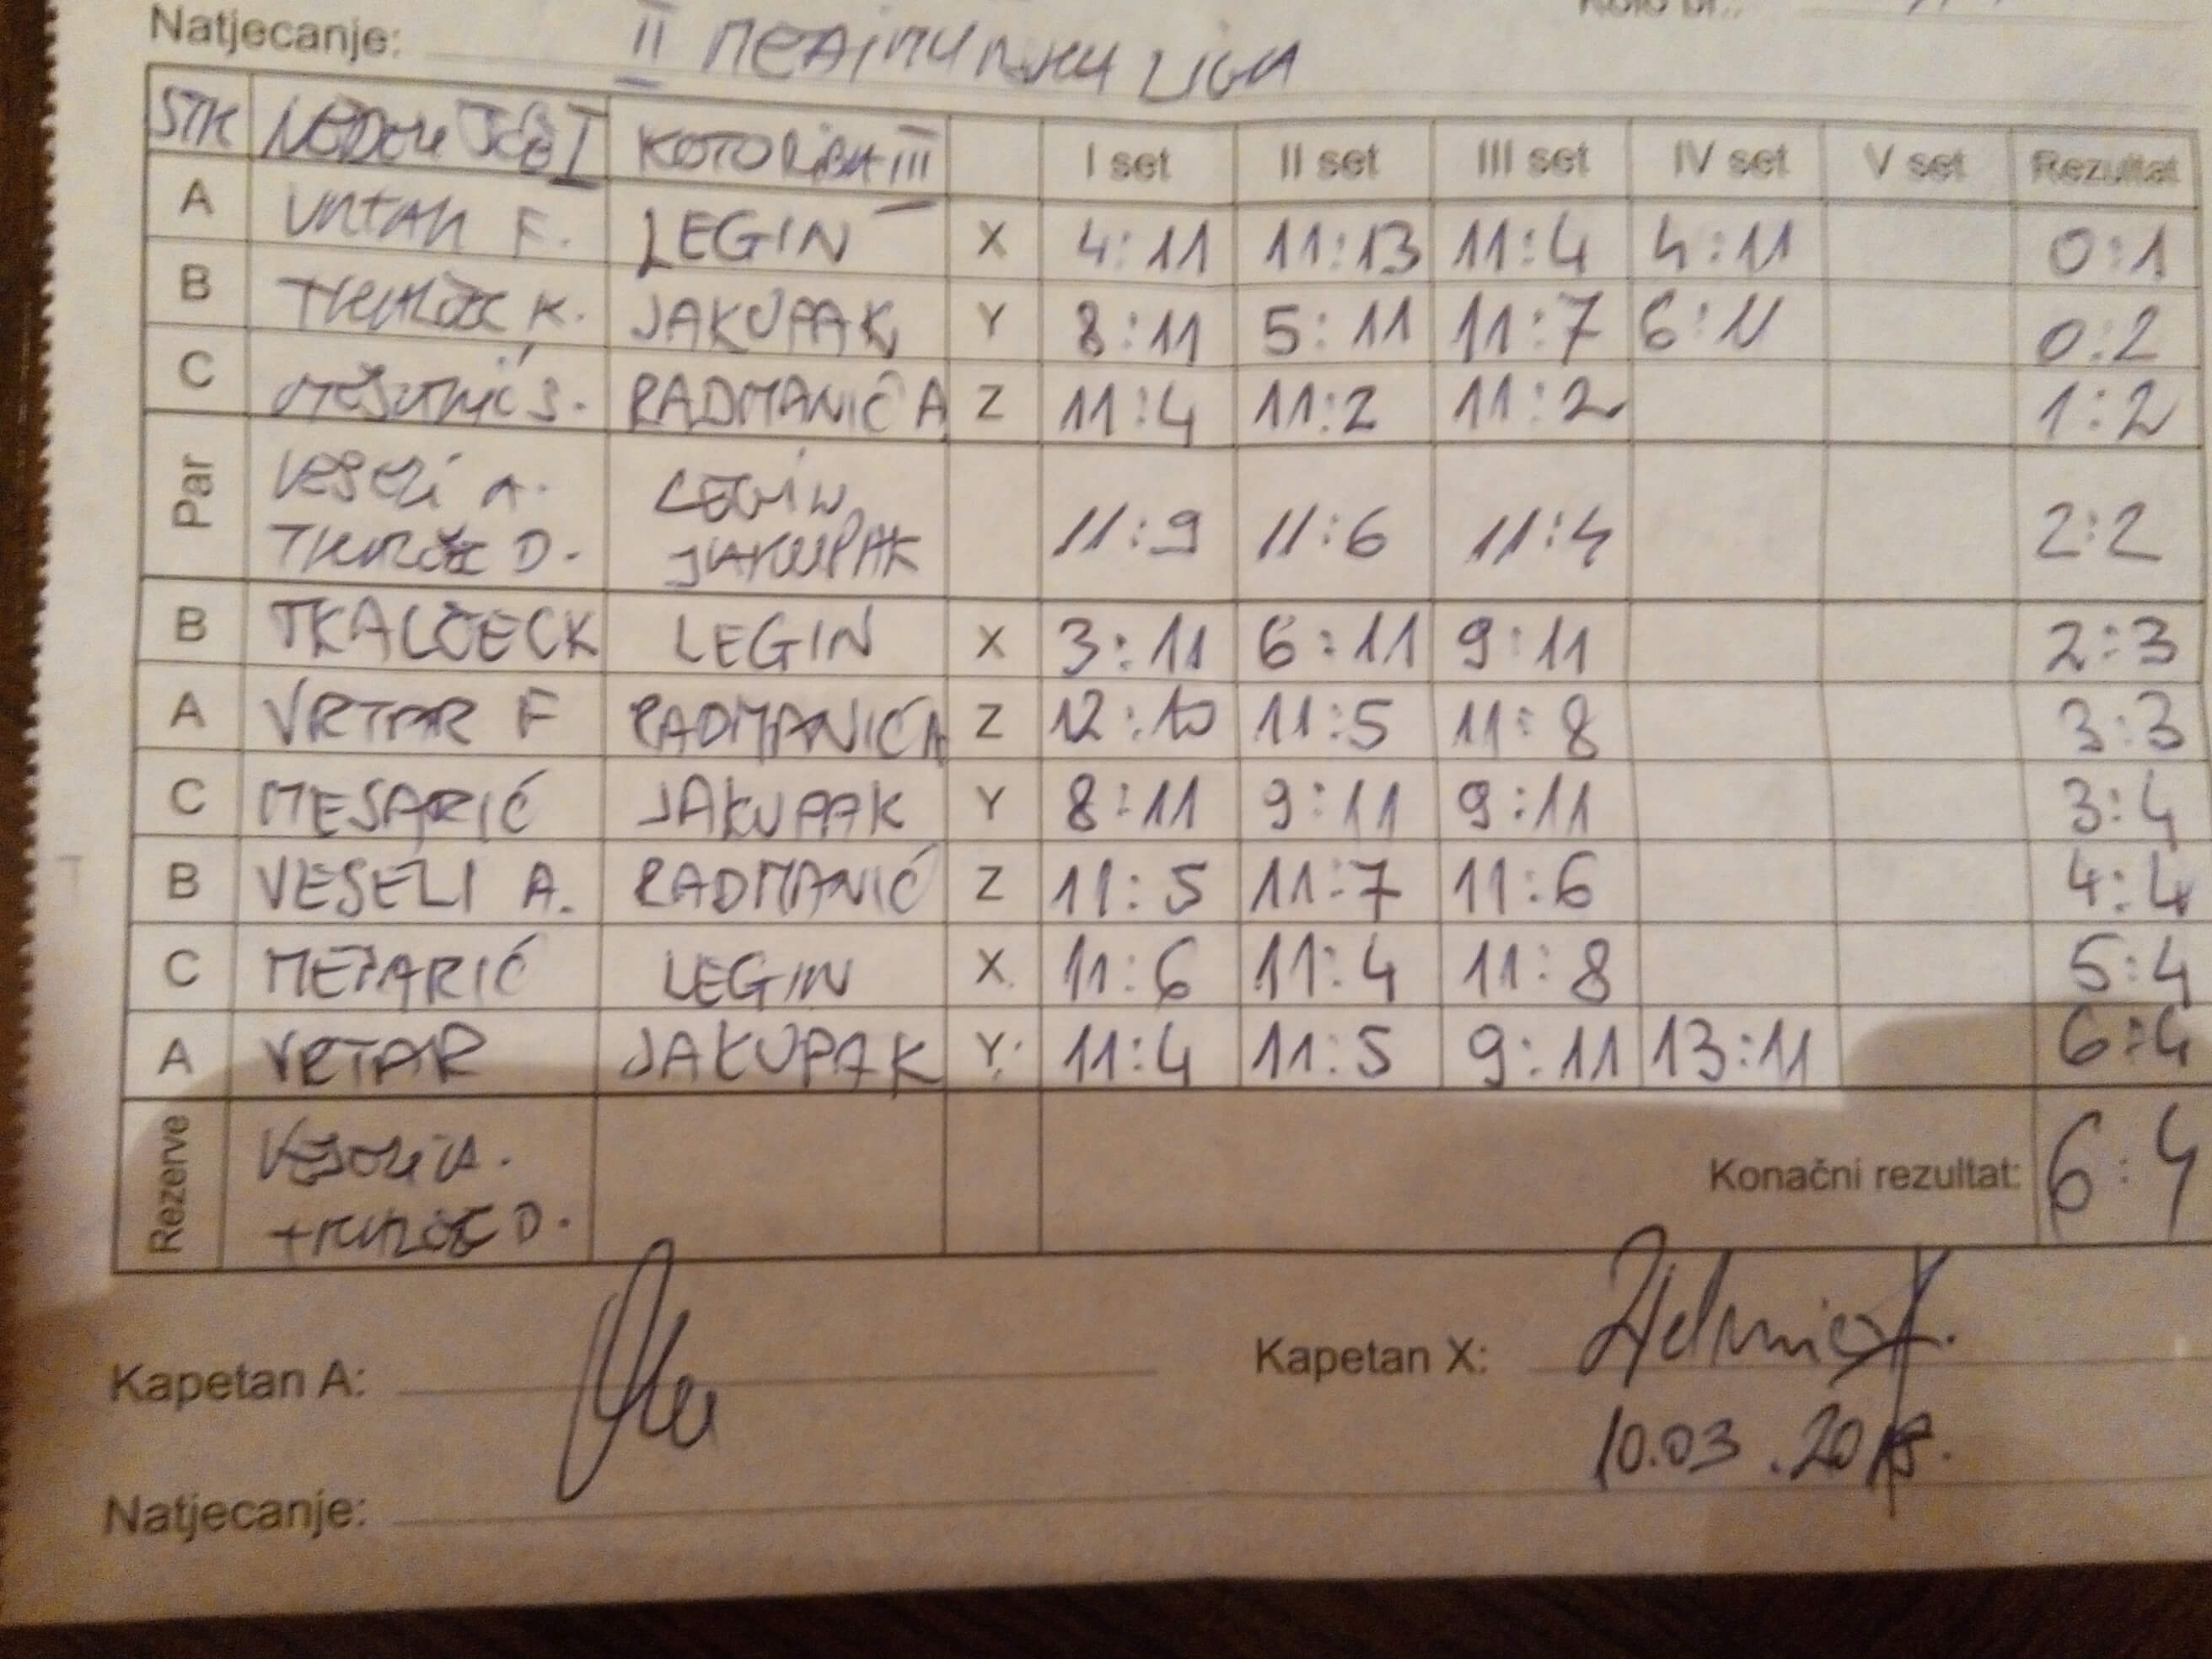 Natjecanje: II MEĐIMURSKA LIGA
STK NEDELIŠĆE I KOTORIBA III I set II set III set IV set V set Rezultat
A VRTAR F. LEGIN X 4:11 11:13 11:4 4:11 0:1
B TKALČEC K. JAKUPAK Y 8:11 5:11 11:7 6:11 0:2
C MESARIĆ S. RADMANIĆ A Z 11:4 11:2 11:2 1:2
Par VESELI A. LEGIN 11:9 11:6 11:4 2:2
TKALČEC D. JAKUPAK
B TKALČEC K LEGIN X 3:11 6:11 9:11 2:3
A VRTAR F RADMANIĆ A Z 12:10 11:5 11:8 3:3
C MESARIĆ JAKUPAK Y 8:11 9:11 9:11 3:4
B VESELI A. RADMANIĆ Z 11:5 11:7 11:6 4:4
C MESARIĆ LEGIN X 11:6 11:4 11:8 5:4
A VRTAR JAKUPAK Y 11:4 11:5 9:11 13:11 6:4
Rezerve VESELI A. Konačni rezultat: 6:4
TKALČEC D.
Kapetan A: Kapetan X:
10.03.2018.
Natjecanje: